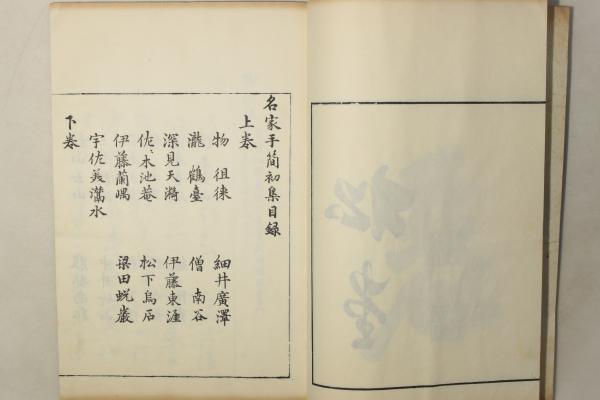 名家手簡初集目録
上巻
物徂徠 細井廣澤
瀧鶴臺 僧南谷
深見天漪 伊藤東涯
佐〻木池菴 松下烏石
伊藤蘭嵎 梁田蛻巖
宇佐美灊水
下巻